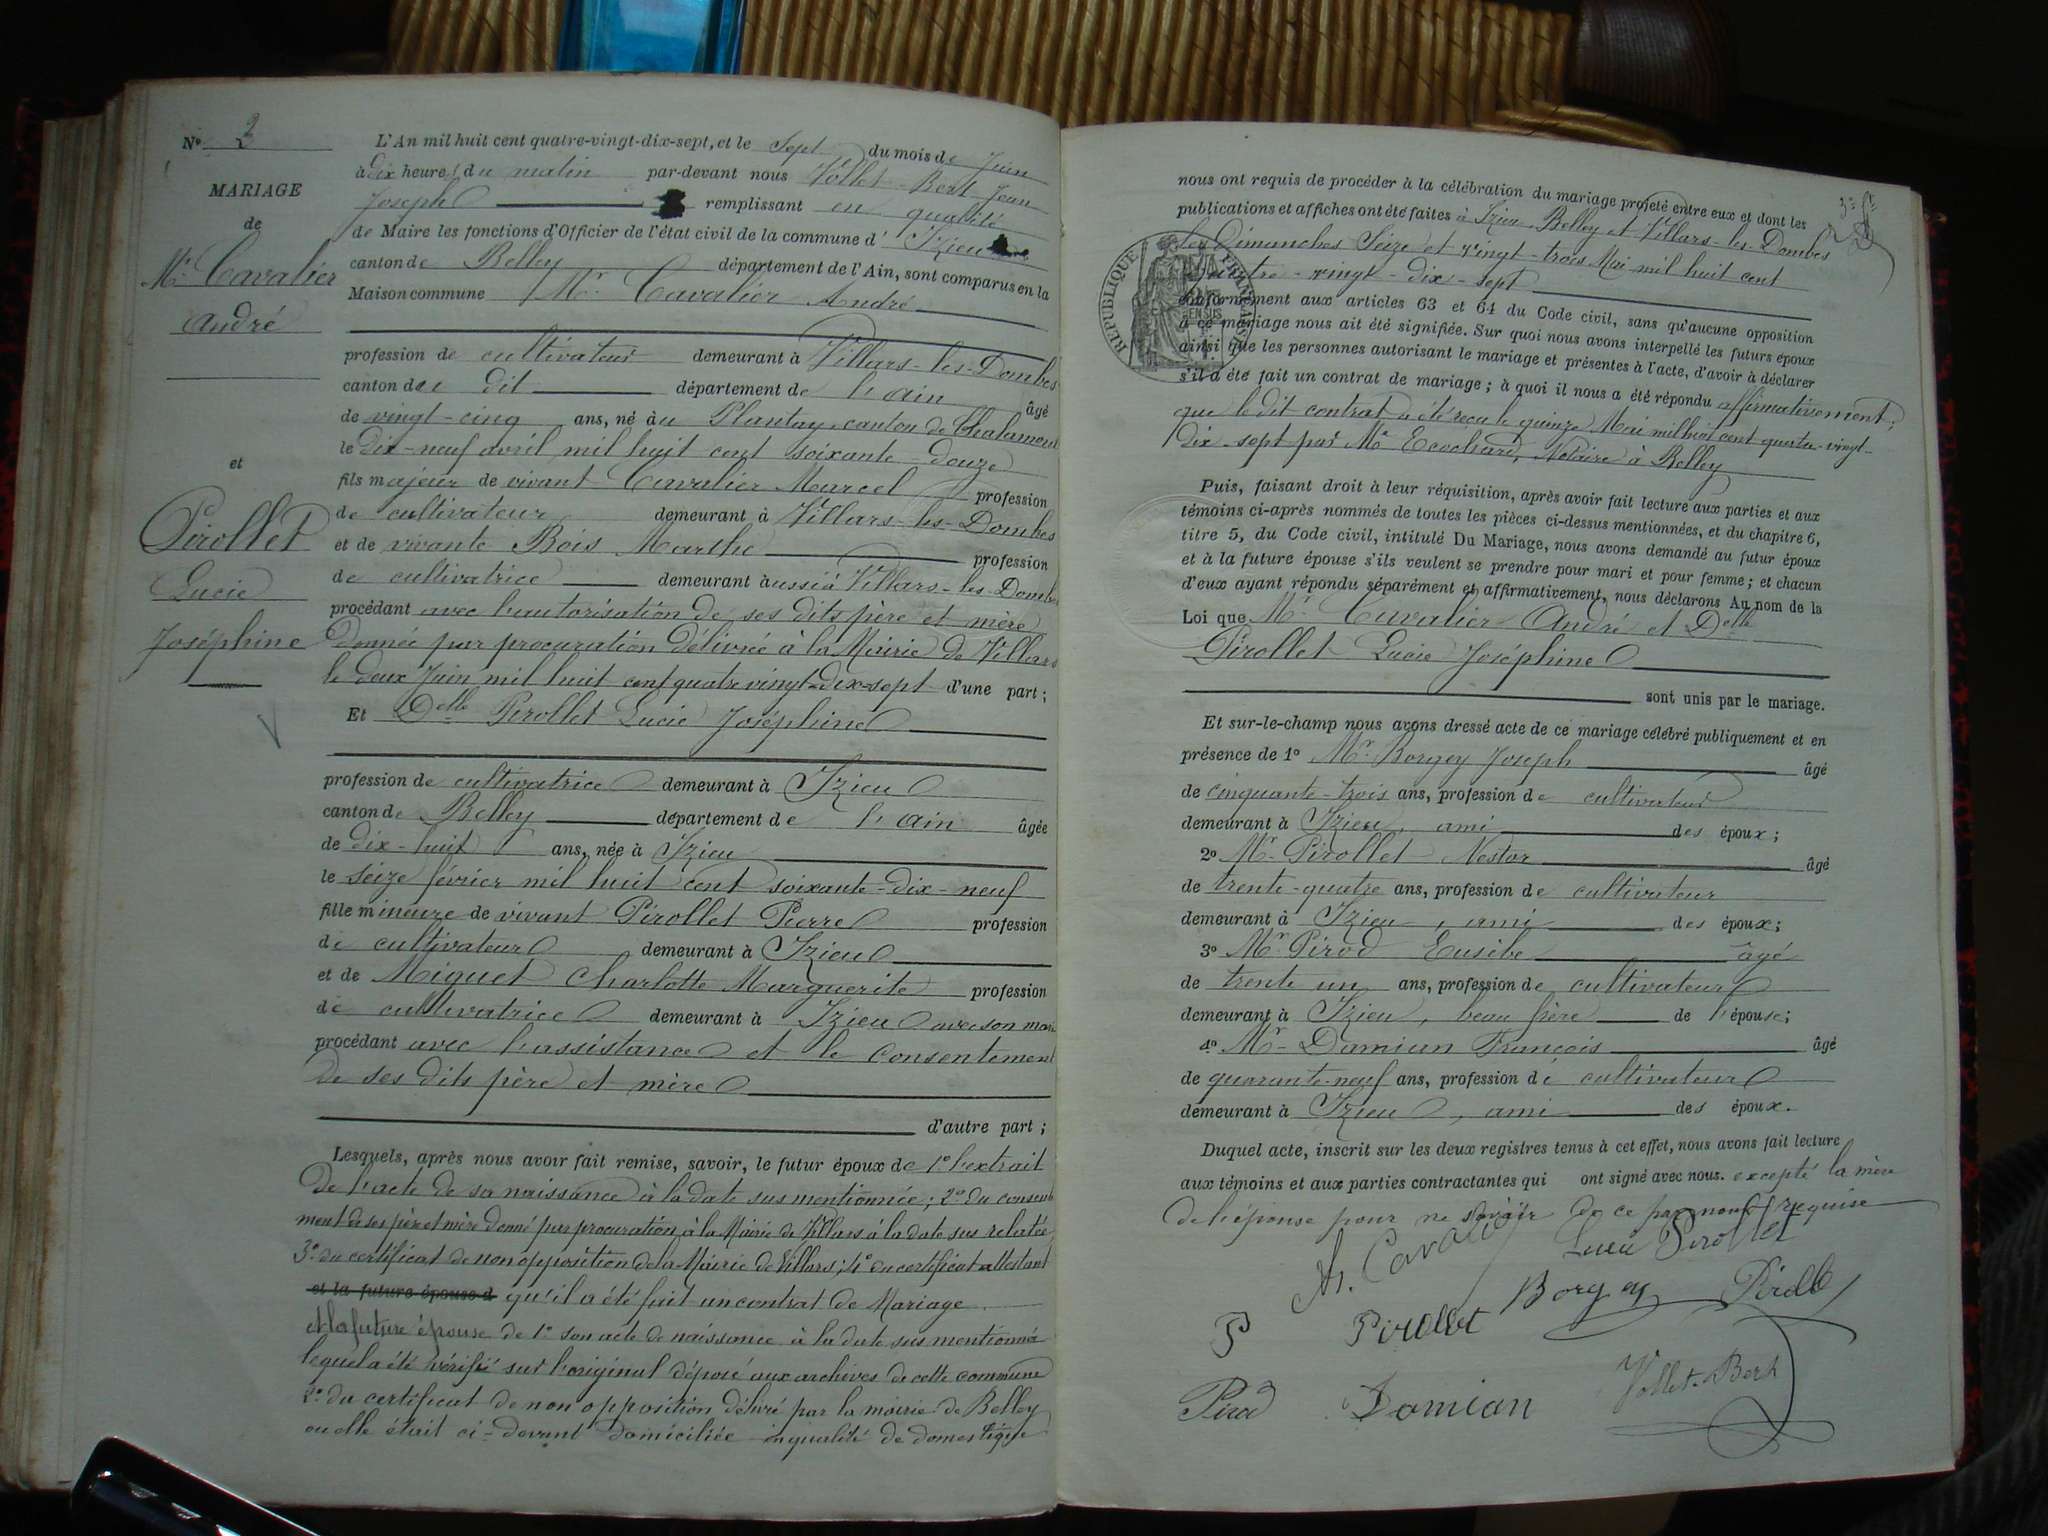 N° 2
MARIAGE
de
Mr. Cavalier
André
et
Pirollet
Lucie
Joséphine
L'An mil huit cent quatre-vingt-dix-sept, et le Sept du mois de Juin
à dix heures du matin par-devant nous Vollet-Bert Jean
Joseph remplissant en qualité
de Maire les fonctions d'Officier de l'état civil de la commune d' Izieu
canton de Belley département de l'Ain, sont comparus en la
Maison commune Mr. Cavalier André
profession de cultivateur demeurant à Villars-les-Dombes
canton de dit département de l'ain âgé
de vingt-cinq ans, né au Plantay, canton de Chalamont
le Dix-neuf avril mil huit cent soixante-douze
fils majeur de vivant Cavalier Marcel profession
de cultivateur demeurant à Villars-les-Dombes
et de vivante Bois Marthe profession
de cultivatrice demeurant aussi à Villars-les-Dombes
procédant avec l'autorisation de ses dits père et mère
Donnée par procuration délivrée à la Mairie de Villars
le deux Juin mil huit cent quatre vingt-dix-sept d'une part ;
Et Delle Pirollet Lucie Joséphine
profession de cultivatrice demeurant à Izieu
canton de Belley département de l'ain âgée
de dix-huit ans, née à Izieu
le seize février mil huit cent soixante-dix-neuf
fille mineure de vivant Pirollet Pierre profession
de cultivateur demeurant à Izieu
et de Miguet Charlotte Marguerite profession
de cultivatrice demeurant à Izieu avec son mari
procédant avec l'assistance et le consentement
de ses dits père et mère
d'autre part ;
Lesquels, après nous avoir fait remise, savoir, le futur époux de 1° l'extrait
De l'acte de sa naissance à la date sus mentionnée ; 2° du consente
ment de ses père et mère donné par procuration à la Mairie de Villars à la date sus relatée
3° du certificat de non opposition de la Mairie de Villars ; 4° du certificat attestant
et la future épouse d qu'il a été fait un contrat de Mariage
et la future épouse de 1° son acte de naissance à la date sus mentionnée
lequel a été vérifié sur l'original déposé aux archives de cette commune
2° du certificat de non opposition délivré par la mairie de Belley
ou elle était ci-devant domiciliée en qualité de domestique
nous ont requis de procéder à la célébration du mariage projeté entre eux et dont les
publications et affiches ont été faites à Izieu Belley et Villars-les-Dombes
les Dimanches Seize et vingt-trois Mai mil huit cent
quatre-vingt-dix-sept
RÉPUBLIQUE FRANÇAISE
conformément aux articles 63 et 64 du Code civil, sans qu'aucune opposition
à ce mariage nous ait été signifiée. Sur quoi nous avons interpellé les futurs époux
ainsi que les personnes autorisant le mariage et présentes à l'acte, d'avoir à déclarer
s'il a été fait un contrat de mariage ; à quoi il nous a été répondu affirmativement,
que le dit contrat a été reçu le quinze Mai mil huit cent quatre-vingt-
dix-sept par Me Ecochard, Notaire à Belley
Puis, faisant droit à leur réquisition, après avoir fait lecture aux parties et aux
témoins ci-après nommés de toutes les pièces ci-dessus mentionnées, et du chapitre 6,
titre 5, du Code civil, intitulé Du Mariage, nous avons demandé au futur époux
et à la future épouse s'ils veulent se prendre pour mari et pour femme ; et chacun
d'eux ayant répondu séparément et affirmativement, nous déclarons Au nom de la
Loi que Mr. Cavalier André et Delle
Pirollet Lucie Joséphine
sont unis par le mariage.
Et sur-le-champ nous avons dressé acte de ce mariage célébré publiquement et en
présence de 1° Mr. Borgey Joseph âgé
de cinquante-trois ans, profession de cultivateur
demeurant à Izieu, ami des époux ;
2° Mr. Pirollet Nestor âgé
de trente-quatre ans, profession de cultivateur
demeurant à Izieu, ami des époux ;
3° Mr Pirod Eusèbe âgé
de trente un ans, profession de cultivateur
demeurant à Izieu, beau frère de l'épouse ;
4° Mr. Damian François âgé
de quarante-neuf ans, profession de cultivateur
demeurant à Izieu, ami des époux.
Duquel acte, inscrit sur les deux registres tenus à cet effet, nous avons fait lecture
aux témoins et aux parties contractantes qui ont signé avec nous. excepté la mère
de l'épouse pour ne savoir de ce par nous requise
A. Cavalier Lucie Pirollet
P Pirollet Borgey Pirollet
Pirod Damian Vollet-Bert